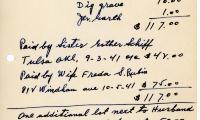 Dig grave 16.00
Jen. Earth 1.00
$ 117.00
Paid by Sister Esther Schiff
Tulsa Okl, 9-3-41 one $42.00
Paid by Wife Freda S. Rubin
814 Windham ave 10-5-41 $75.00
$117.00
One additional lot next to Husband